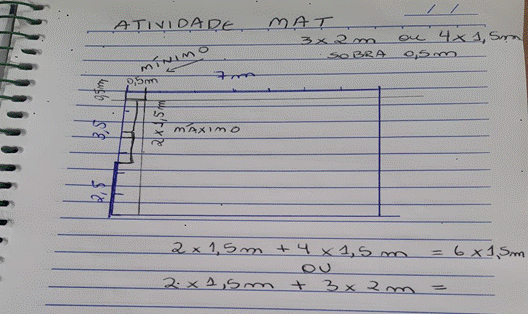 ATIVIDADE MAT
/ /
3 x 2 m ou 4 x 1,5m
SOBRA 0,5m
MÍNIMO
0,5m
7m
0,5m
3,5
2 x 1,5m
MÁXIMO
2,5
2 x 1,5m + 4 x 1,5m = 6 x 1,5m
OU
2 x 1,5m + 3 x 2m =